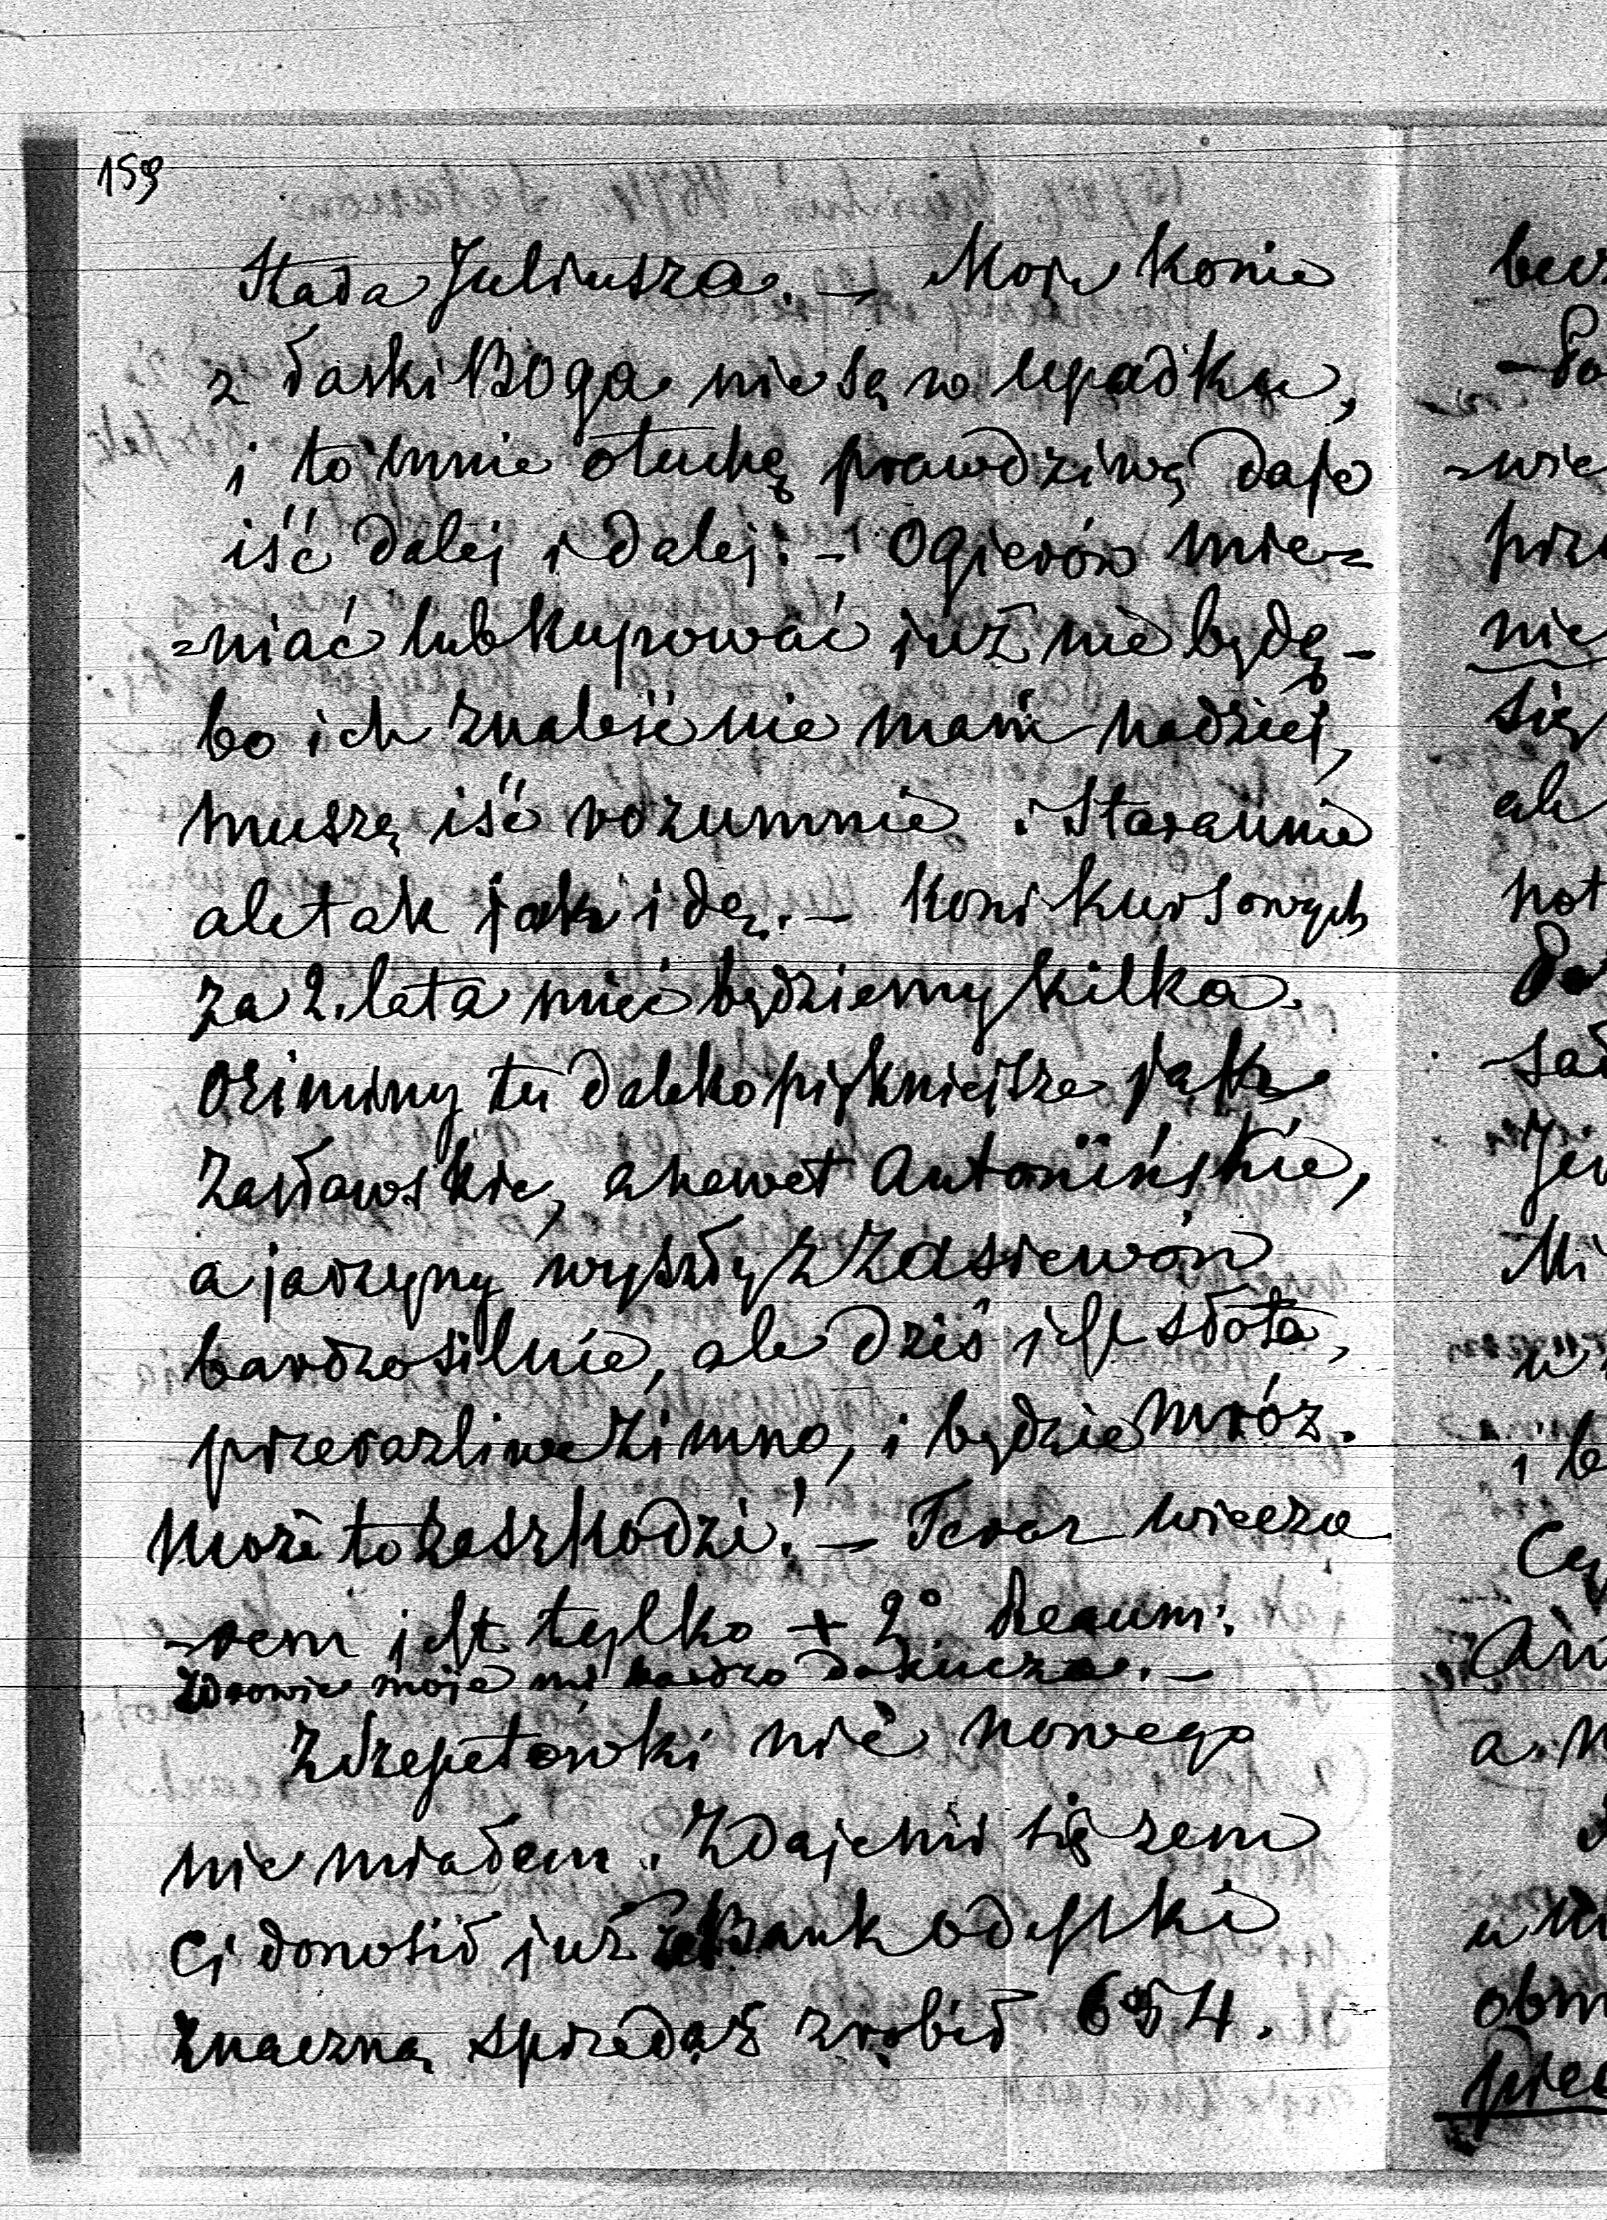 159
Stada Juliusza. – Moje konie
z łaski Boga nie są w upadku,
i to mnie otuchę prawdziwą daje
iść dalej i dalej. – Ogierów mie=
=niać lub kupować już nie będę –
bo ich znaleść nie mam nadziei,
muszę iść rozumnie i starannie
ale tak jak idę. – Koni kursowych
za 2. lata mieć będziemy kilka.
Oziminy tu daleko piękniejsze jak
Zasławskie, a nawet Antonińskie,
a jarzyny wyszły z zasiewów
bardzo silnie, ale dziś jest słota,
przeraźliwe zimno, i będzie mróz.
Może to zaszkodzi! – Teraz wieczo
-rem jest tylko + 2° Reaum:
Zdrowie moje mi bardzo dokucza. –
Z Szepetówki nic nowego
nie miałem. Zdaje mi się żem
Ci donosił już że Bank Odesski
znaczną sprzedaż zrobił 654.